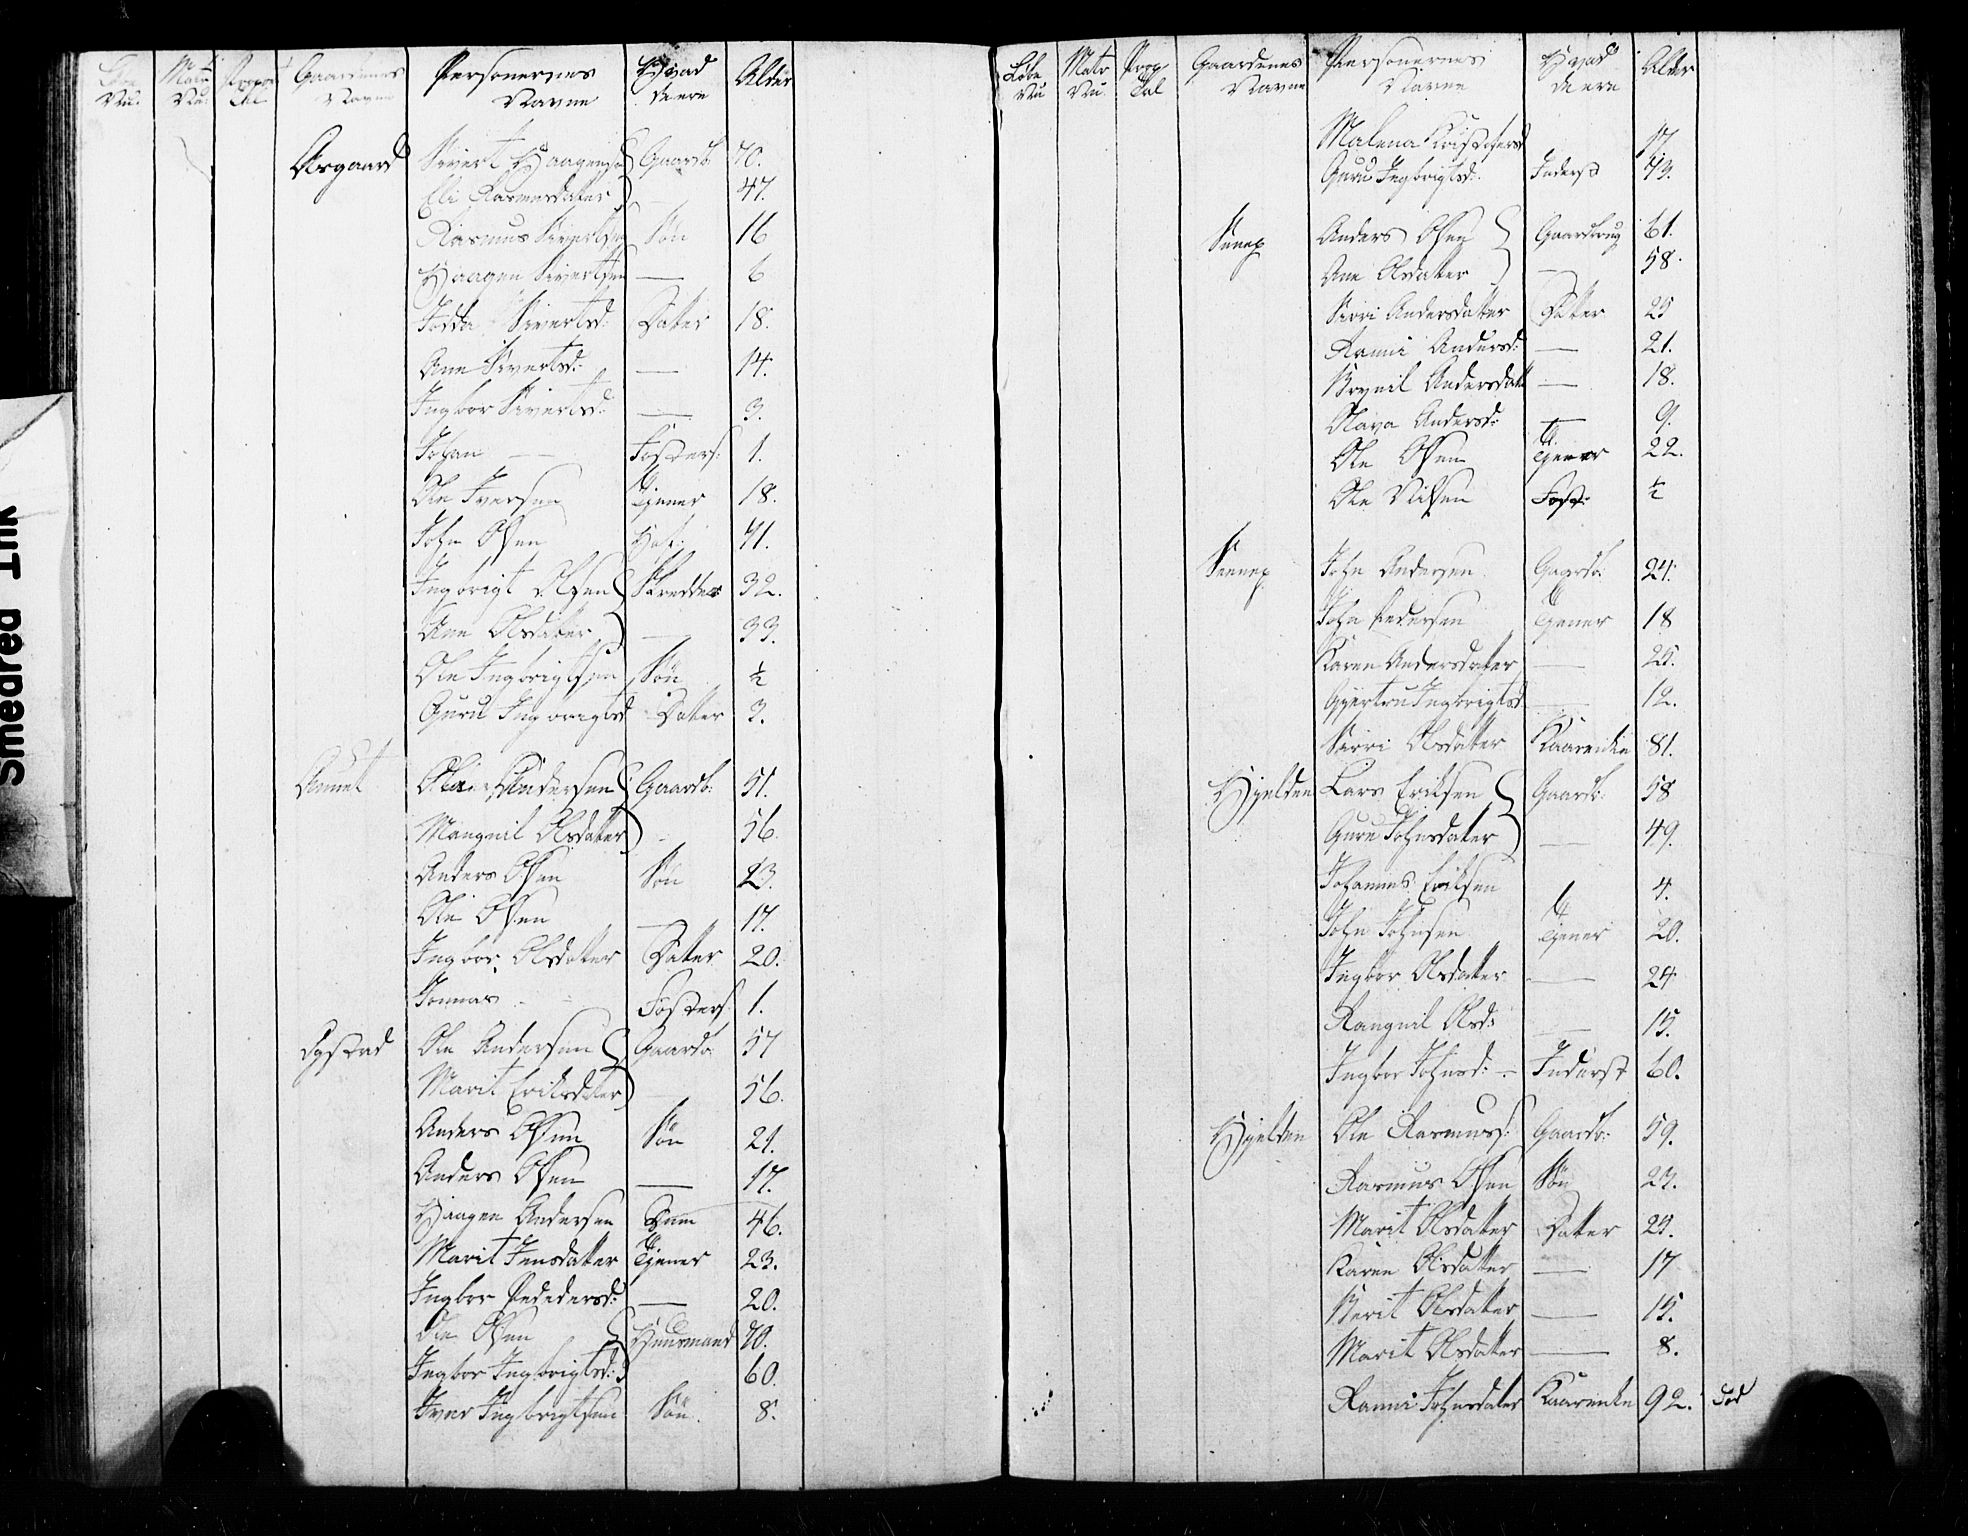 Smedred Ink
Løbe Nu. Matr Nu. Propor Tal Gaardenes Navne Personernes Navne Hvad de ere Alder
Aasgaard Sivert Haagens: Gaardb: 70.
Eli Rasmusdatter 47.
Rasmus Sivertsen Søn 16
Haagen Sivertsen — 6
Sivertsd: Datter 18.
Ane Sivertsd: — 14.
Ingbor Sivertsd: — 3.
Johan — Fosters: 1.
Ole Iversen Tjener 18.
John Olsen 41.
Ingbrigt Olsen Skredder 32.
Ane Olsdatter — 33.
Ole Ingbrigtsen Søn ½
Guru Ingbrigtsd Datter 3.
Aunet Ole Andersen Gaardb: 51.
Mangnil Olsdatter - 56.
Anders Olsen Søn 23.
Ole Olsen — 17.
Ingbor Olsdatter Datter 20.
Jonnas Fosters: 1.
Ystad Ole Andersen Gaardb: 57
Marit Eriksdatter 56.
Anders Olsen Søn 21.
Anders Olsen — 17.
Haagen Andersen 46.
Marit Jensdatter Tjener 23.
Ingbor Pededersd: — 20.
Ole Olsen Huusmand 70.
Ingbor Ingbrigtsd: 60.
Iver Ingbrigtsen Søn 8.
Løbe Nu Matr Nu Prop Tal Gaardenes Navne Personernes Navne Hvad de ere Alder
Malena Kristofersd 17.
Guru Ingbrigtsd: Inderst 73.
Anders Olsen Gaardbrug 61.
Ane Olsdatter — 58.
Sirri Andersdatter Datter 25
Ranni Andersd: — 21.
Brynil Andersdatt — 18.
Olava Andersd: — 9.
Ole Olsen Tjener 22.
Ole Nilsen Fost: ½
John Andersen Gaardb: 24.
John Pedersen Tjener 18
Karen Andersdatter — 25.
Gjertru Ingbrigtsd — 12.
Sirri Olsdatter Kaarenke 81.
Hjelden Lars Eriksen Gaardb: 58
Guru Johnsdatter — 49.
Johannes Eriksen 4.
John Johnsen Tjener 20.
Ingbor Olsdatter — 24
Rangnil Olsd: — 15.
Ingbor Johnsd: — Inderst 60.
Hjelden Ole Rasmuss: Gaardb: 59.
Rasmus Olsen Søn 23.
Marit Olsdatter Datter 25.
Karen Olsdatter — 17
Berit Olsdatter — 15.
Marit Olsdatter — 8.
Ranni Johnsdatter Kaarenke 92. Død